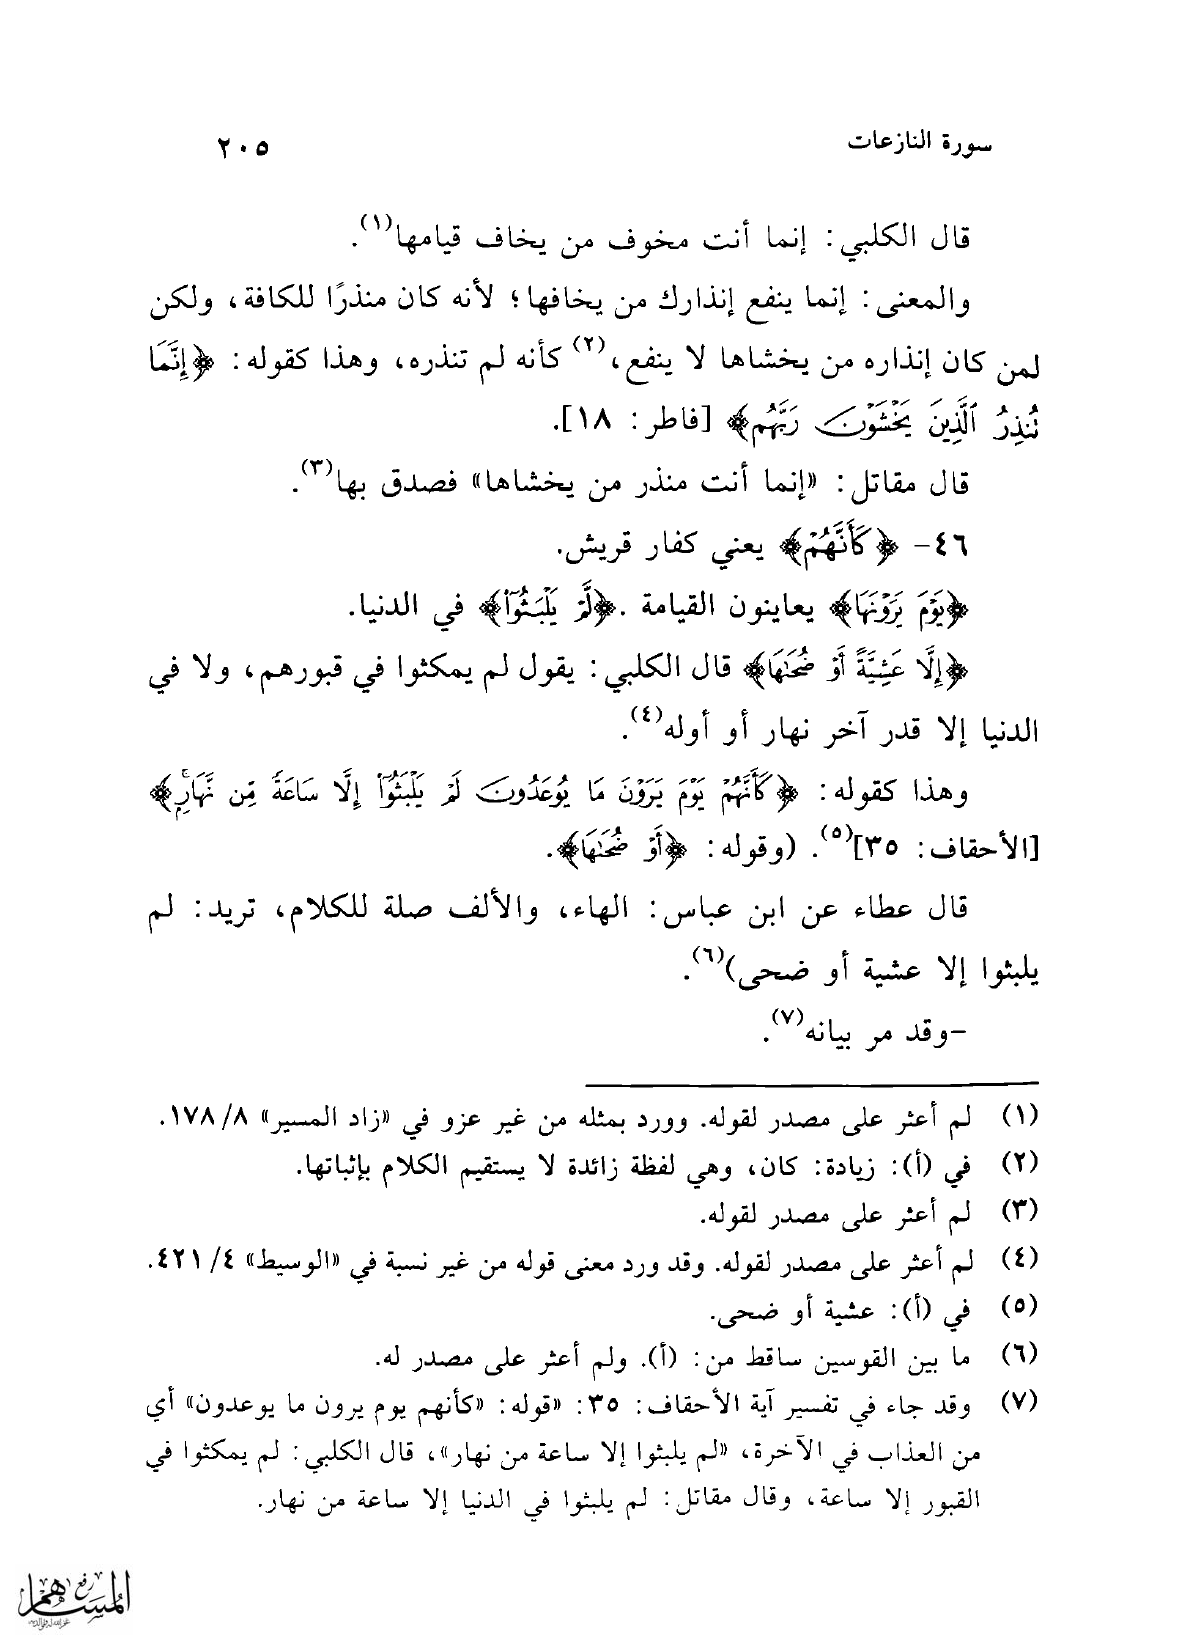 سورة النازعات ٢٠٥
قال الكلبي: إنما أنت مخوف من يخاف قيامها(١).
والمعنى: إنما ينفع إنذارك من يخافها؛ لأنه كان منذرًا للكافة، ولكن
لمن كان إنذاره من يخشاها لا ينفع،(٢) كأنه لم تنذره، وهذا كقوله: ﴿إِنَّمَا
تُنذِرُ ٱلَّذِينَ يَخْشَوْنَ رَبَّهُم﴾ [فاطر: ١٨].
قال مقاتل: «إنما أنت منذر من يخشاها» فصدق بها(٣).
٤٦- ﴿كَأَنَّهُمْ﴾ يعني كفار قريش.
﴿يَوْمَ يَرَوْنَهَا﴾ يعاينون القيامة .﴿لَمْ يَلْبَثُوٓا۟﴾ في الدنيا.
﴿إِلَّا عَشِيَّةً أَوْ ضُحَىٰهَا﴾ قال الكلبي: يقول لم يمكثوا في قبورهم، ولا في
الدنيا إلا قدر آخر نهار أو أوله(٤).
وهذا كقوله: ﴿كَأَنَّهُمْ يَوْمَ يَرَوْنَ مَا يُوعَدُونَ لَمْ يَلْبَثُوٓا۟ إِلَّا سَاعَةً مِّن نَّهَارٍۭ﴾
[الأحقاف: ٣٥](٥). (وقوله: ﴿أَوْ ضُحَىٰهَا﴾.
قال عطاء عن ابن عباس: الهاء، والألف صلة للكلام، تريد: لم
يلبثوا إلا عشية أو ضحى)(٦).
-وقد مر بيانه(٧).
(١) لم أعثر على مصدر لقوله. وورد بمثله من غير عزو في «زاد المسير» ٨/ ١٧٨.
(٢) في (أ): زيادة: كان، وهي لفظة زائدة لا يستقيم الكلام بإثباتها.
(٣) لم أعثر على مصدر لقوله.
(٤) لم أعثر على مصدر لقوله. وقد ورد معنى قوله من غير نسبة في «الوسيط» ٤/ ٤٢١.
(٥) في (أ): عشية أو ضحى.
(٦) ما بين القوسين ساقط من: (أ). ولم أعثر على مصدر له.
(٧) وقد جاء في تفسير آية الأحقاف: ٣٥: «قوله: «كأنهم يوم يرون ما يوعدون» أي
من العذاب في الآخرة، «لم يلبثوا إلا ساعة من نهار»، قال الكلبي: لم يمكثوا في
القبور إلا ساعة، وقال مقاتل: لم يلبثوا في الدنيا إلا ساعة من نهار.